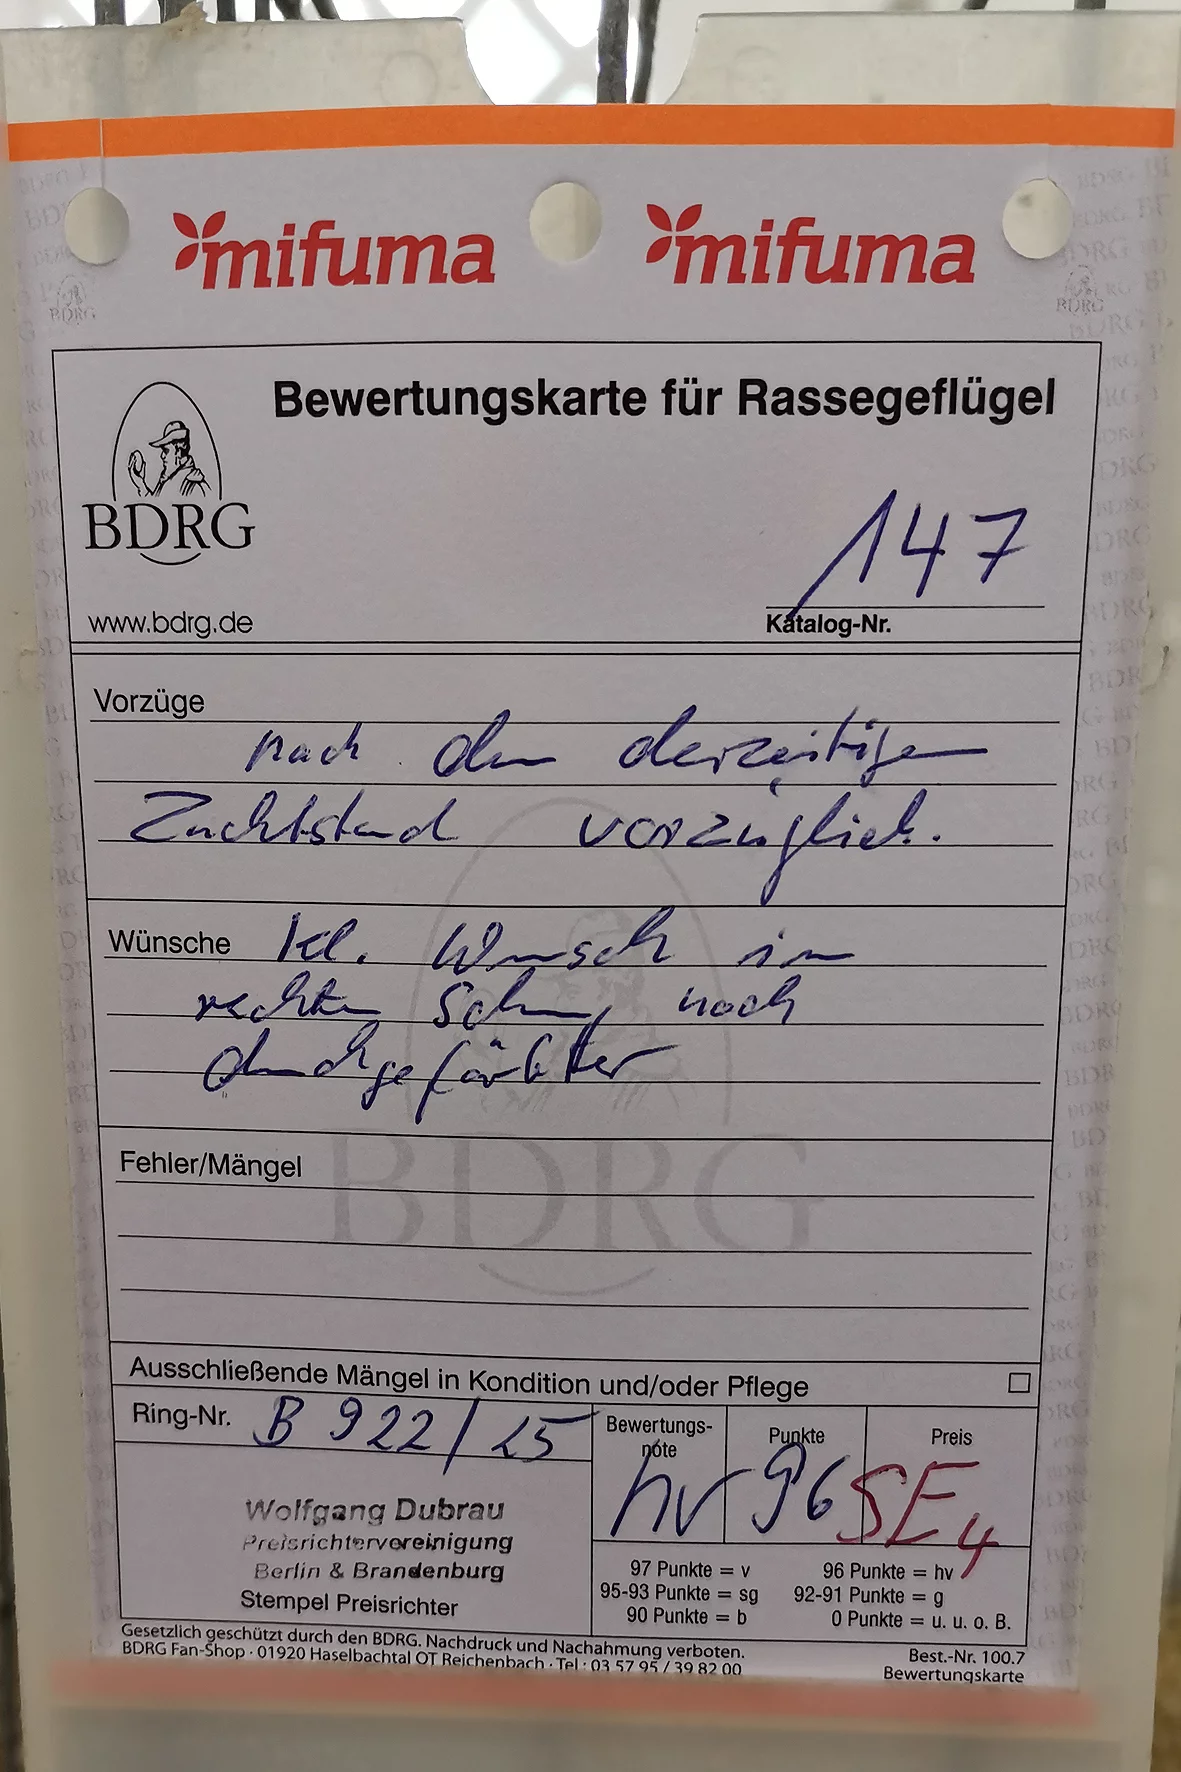 mifuma mifuma
BDRG BDRG
Bewertungskarte für Rassegeflügel
BDRG
www.bdrg.de
147
Katalog-Nr.
Vorzüge
nach dem derzeitigen
Zuchtstand vorzüglich.
Wünsche kl. Wunsch im
rechten noch
durchgefärbter
BDRG
Fehler/Mängel
Ausschließende Mängel in Kondition und/oder Pflege
Ring-Nr. B 922/25
Bewertungsnote Punkte Preis
hv 96 SE 4
Wolfgang Dubrau
Preisrichtervereinigung
Berlin & Brandenburg
Stempel Preisrichter
97 Punkte = v 96 Punkte = hv
95-93 Punkte = sg 92-91 Punkte = g
90 Punkte = b 0 Punkte = u. u. o. B.
Gesetzlich geschützt durch den BDRG. Nachdruck und Nachahmung verboten.
BDRG Fan-Shop · 01920 Haselbachtal OT Reichenbach · Tel.: 03 57 95 / 39 82 00
Best.-Nr. 100.7
Bewertungskarte